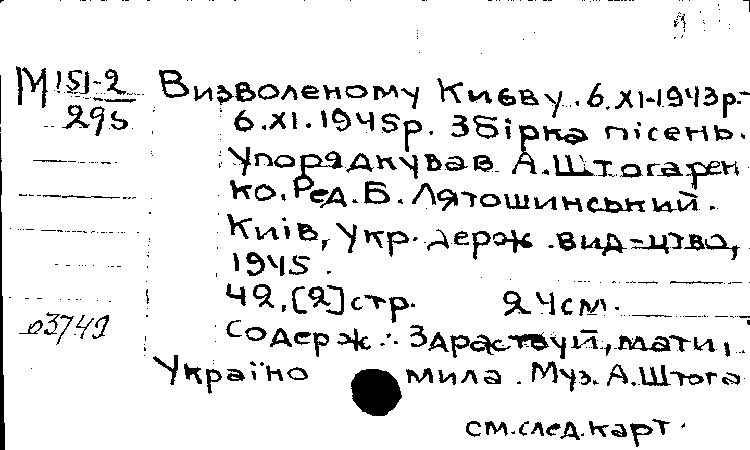 М 151-2
295
Визволеному Києву. 6.XI-1943р.-
6.XI.1945р. Збірка пісень.
Упорядкував А.Штогарен
ко. Ред. Б. Лятошинський.
Київ, Укр. держ. вид-цтво,
1945.
42,[2]стр. 24см.
03749
Содерж.: Здраствуй, мати,
Україно мила. Муз. А.Штога
см.след.карт.